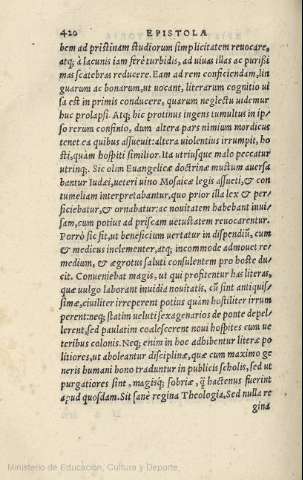 420 EPISTOLA
bem ad pristinam studiorum simplicitatem reuocare,
atq; à lacunis iam ferè turbidis, ad uiuas illas ac purißi
mas scatebras reducere. Eam ad rem conficiendam, lin
guarum ac bonarum, ut uocant, literarum cognitio ui
sa est in primis conducere, quarum neglectu uidemur
huc prolapsi. Atq; hic protinus ingens tumultus in ip/
so rerum confinio, dum altera pars nimium mordicus
tenet ea quibus assueuit: altera uiolentius irrumpit, ho
sti, quàm hospiti similior. Ita utriusque malo peccatur
utrinq;. Sic olim Euangelicæ doctrinæ mustum auersa
bantur Iudæi, ueteri uino Mosaicæ legis assueti, & con
tumeliam interpretabantur, quo prior illa lex & per/
ficiebatur, & ornabatur: ac nouitatem habebant inui/
sam, cum potius ad priscam uetustatem reuocarentur.
Porrò sic fit, ut beneficium uertatur in dispendiũ, cum
& medicus inclementer, atq; incommode admouet re/
medium, & ægrotus saluti consulentem pro hoste du/
cit. Conueniebat magis, ut qui profitentur has literas,
quæ uulgo laborant inuidia nouitatis, cũ sint antiquis/
simæ, ciuiliter irreperent potius quàm hostiliter irrum
perent: neq; statim ueluti sexagenarios de ponte depel/
lerent, sed paulatim coalescerent noui hospites cum ue
teribus colonis. Neq; enim in hoc adhibentur literæ po
litiores, ut aboleantur disciplinæ, quæ cum maximo ge
neris humani bono traduntur in publicis scholis, sed ut
purgatiores sint, magisq; sobriæ, q̃ hactenus fuerint
apud quosdam. Sit sanè regina Theologia. Sed nulla re
gina
Ministerio de Educación, Cultura y Deporte,